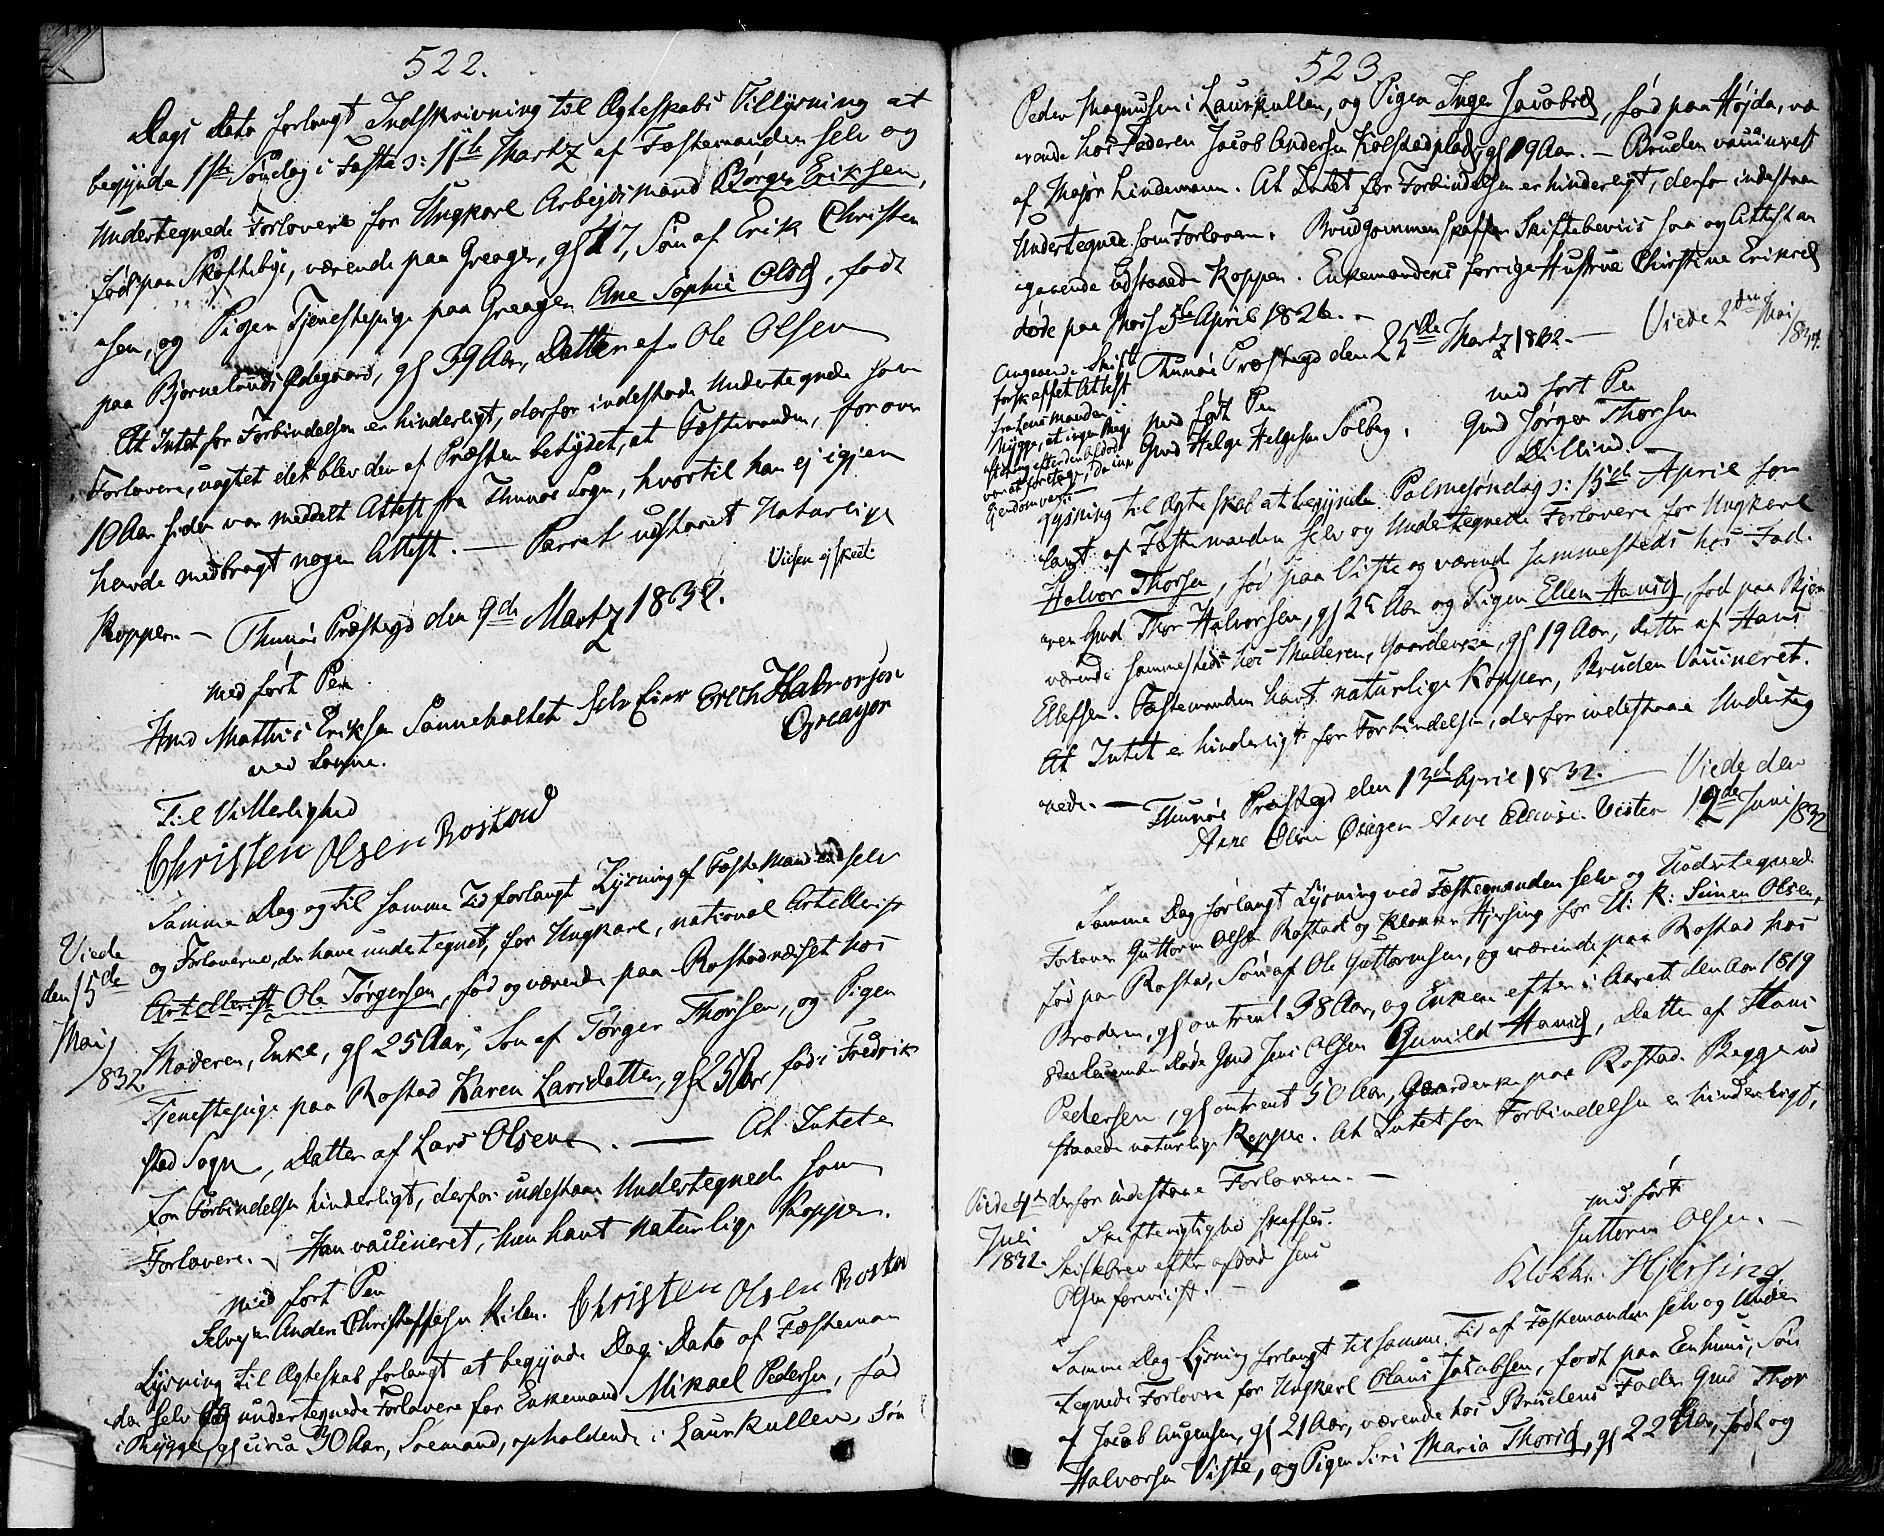 522.
Dags Dato forlangt Indskrivning til Ægteskabs Tillysning at
begynde 1ste Søndag i Faste s: 11te Martz af Fæstemanden selv og
Undertegnede Forlovere for Ungkarl Arbejdsmand Børge Eriksen,
født paa Skoftebye, værende paa Greager, gl 27, Søn af Erik Christen
sen, og Pigen Tjenestepige paa Greagen Ane Sophie Olsd, født
paa Bjørnelands Ødegaard, gl 39 Aar, Datter af Ole Olsen
At Intet for Forbindelsen er hinderligt, derfor indestode Undertegnede som
Forlovere, uagtet det blev dem af Præsten betydet, at Fæstemanden, for over
10 Aar siden var meddelt Attest fra Thunøe Sogn, hvortil han ej igjen
havde medbragt nogen Attest. — Parret udstaaet Naturlige
Kopper —
Vielsen ej skeet.
Thunøe Præstegd den 9de Martz 1832.
med ført Pen
Hmd Mathis Eriksen Sanneholtet Selv Eier Erich Halvorsen
ved Sanne. Greager
Til Vitterlighed
Christen Olsen Rostad
Samme Dag og til samme Tid forlangt Lysning af Fæstemanden selv
og Forloverne, der have undertegnet, for Ungkarl, national Artellerist
Artellerist Ole Tørgersen, fød og værende paa Rostadnæset hos
Moderen, Enke, gl 25 Aar, Søn af Tørger Thorsen, og Pigen
Tjenestepige paa Rostad Karen Larsdatter, gl 25 Aar, fød i Fredrik
stad Sogn, Datter af Lars Olsen. — At Intet er
for Forbindelsen hinderligt, derfor indestaae Undertegnede som
Forlovere. — Han vaccineret, hun havt naturlige Kopper.
Viede
den 15de
Mai
1832
med ført Pen
Selvejer Anders Christoffersen Kilen. Christen Olsen Rostad
Lysning til Ægteskab forlangt at begynde Dags Dato af Fæsteman
den selv og undertegnede Forlovere for Enkemand Mikael Pedersen, fød
i Rygge, gl circa 30 Aar, Søemand, opholdende i Laurkullen, Søn
523
Peder Magnusen i Laurkullen, og Pigen Inger Jacobsd, fød paa Højda, væ
rende hos Faderen Jacob Andersen Kolstadplads, gl 19 Aar. — Bruden vaccineret
af Major Lindemann. At Intet for Forbindelsen er hinderligt, derfor indestaae
Undertegnede som Forlovere. Brudgommen skaffer Skiftebeviis saa og Attest an
gaaende udstaaede Kopper. Enkemandens forrige Hustrue Christine Eriksd
døde paa Mors 5te April 1826. —
Thunøe Præstegd den 25de Martz 1832. —
Viede 2den Mai
1832.
Angaaende Skift
forskaffet Attest
fra Lensmanden i
Rygge, at ingen
efter den afdøde
var at foretage, da inn
Ejendom var.
med ført Pen
Gmd Helge Helgesen Solberg.
med ført Pen
Gmd Jørgen Thorsen
Dilling.
Lysning til Ægteskab at begynde Palmesøndag s: 15de April for
langt af Fæstemanden selv og Undertegnede Forlovere for Ungkarl
Halvor Thorsen, fød paa Viste og værende sammesteds hos Fad
eren Gmd Thor Halvorsen, gl 25 Aar og Pigen Ellen Hansd, fød paa
værende sammesteds hos Moderen, Gaardenke, gl 19 Aar, Datter af Hans
Ellefsen. Fæstemanden havt naturlige Kopper, Bruden Vaccineret.
At Intet er hinderligt for Forbindelsen, derfor indestaae Underteg
nede. — Thunøe Præstegd den 13de April 1832. —
Viede den
12de Juni 1832
Samme Dag forlangt Lysning ved Fæstemanden selv og Undertegnede
Forlovere Guttorm Olsen Rostad og Klokker Hjersing for U: K: Simen Olsen,
fød paa Rostad, Søn af Ole Guttormsen, og værende paa Rostad hos
Broderen, gl omtrent 38 Aar, og Enken efter i Aaret den Aar 1819
8de December døde Gmd Jens Olsen Gunild Hansd, Datter af Hans
Pedersen, gl omtrent 50 Aar, Gaardenke paa Rostad. Begge ud
staaede naturlige Kopper. At Intet for Forbindelsen er hinderligt,
derfor indestaae Forloverne. —
Viede 4de
Juli
1832.
Skifterigtighed skaffes.
Skiftebrev efter afdøde Jens
Olsen foreviist. —
med ført
Guttorm Olsen. —
Klokker Hjersing
Samme Dag Lysning forlangt til samme Tid af Fæstemanden selv og Under
tegnede Forlovere for Ungkarl Olaus Jacobsen, født paa Eenhuus, Søn
af Jacob Augensen, gl 21 Aar, værende hos Brudens Fader Gmd Thor
Halvorsen Viste, og Pigen Siri Maria Thorsd, gl 22 Aar, født og